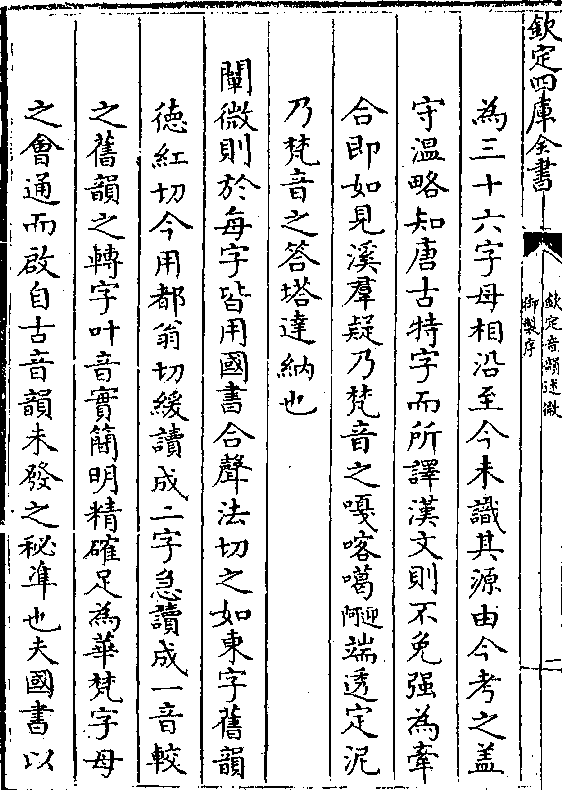 欽定四庫全書
欽定音韻述微
御製序
二
為三十六字母相沿至今未識其源由今考之盖
守温略知唐古特字而所譯漢文則不免强為牽
合即如見溪羣疑乃梵音之嘎喀噶迎阿端透定泥
乃梵音之答塔達納也
闡微則於每字皆用國書合聲法切之如東字舊韻
徳紅切今用都翁切緩讀成二字急讀成一音較
之舊韻之轉字叶音實簡明精確足為華梵字母
之會通而啟自古音韻未發之秘凖也夫國書以